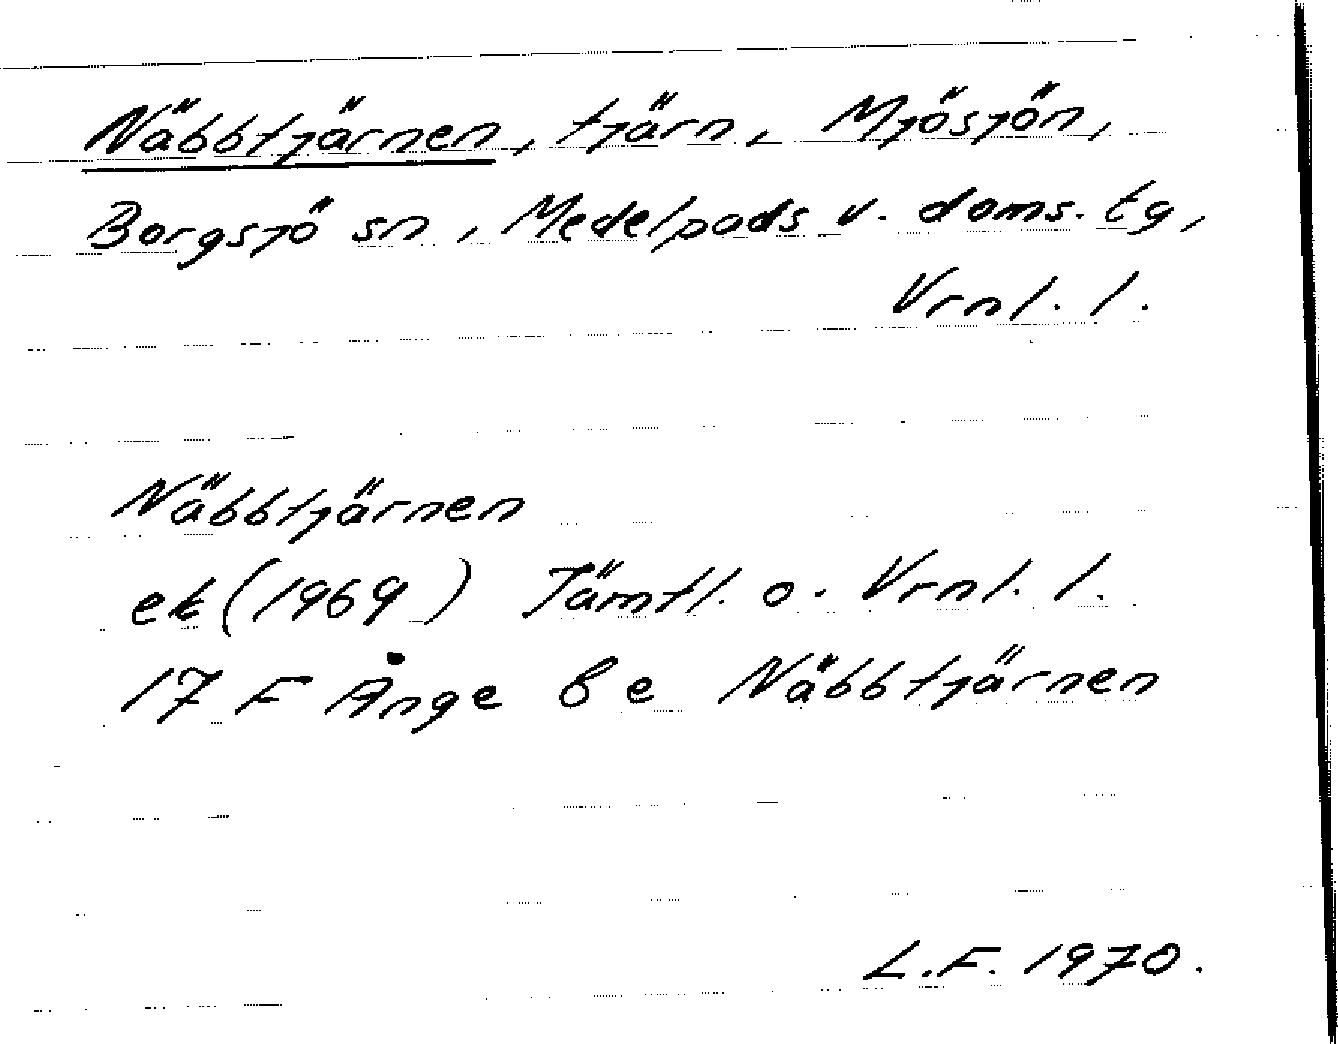 Näbbtjärnen, tjärn, Mjösjön,
Borgsjö sn, Medelpads v. doms. tg,
Vrnl. l.
Näbbtjärnen
ek (1969) Jämtl. o. Vrnl. l.
17 F Ånge 8 e Näbbtjärnen
L.F. 1970.